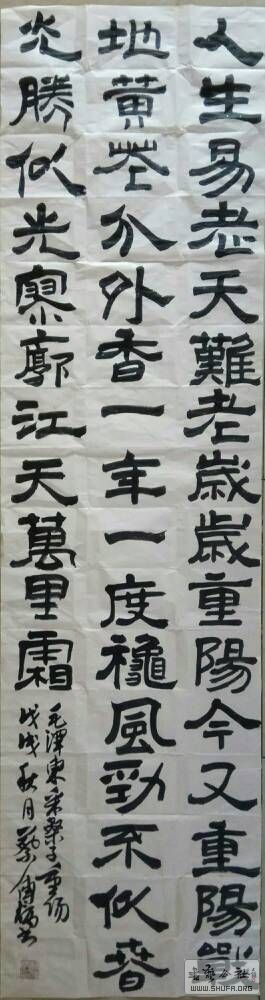 人生易老天難老歲歲重陽今又重陽戰
地黄花分外香一年一度穐風勁不似春
光勝似光寥廓江天萬里霜
毛澤東采桑子重陽
戊戌秋月蔡
公社
WWW.SHUFA.ORG